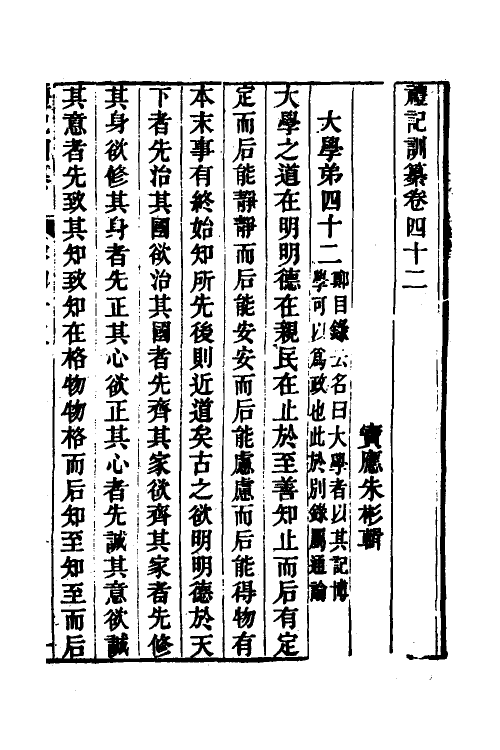 禮記訓纂卷四十二
寶應朱彬輯
大學弟四十二
鄭目錄云名曰大學者以其記博
學可以爲政也此於別錄屬通論
大學之道在明明德在親民在止於至善知止而后有定
定而后能靜靜而后能安安而后能慮慮而后能得物有
本末事有終始知所先後則近道矣古之欲明明德於天
下者先治其國欲治其國者先齊其家欲齊其家者先修
其身欲修其身者先正其心欲正其心者先誠其意欲誠
其意者先致其知致知在格物物格而后知至知至而后